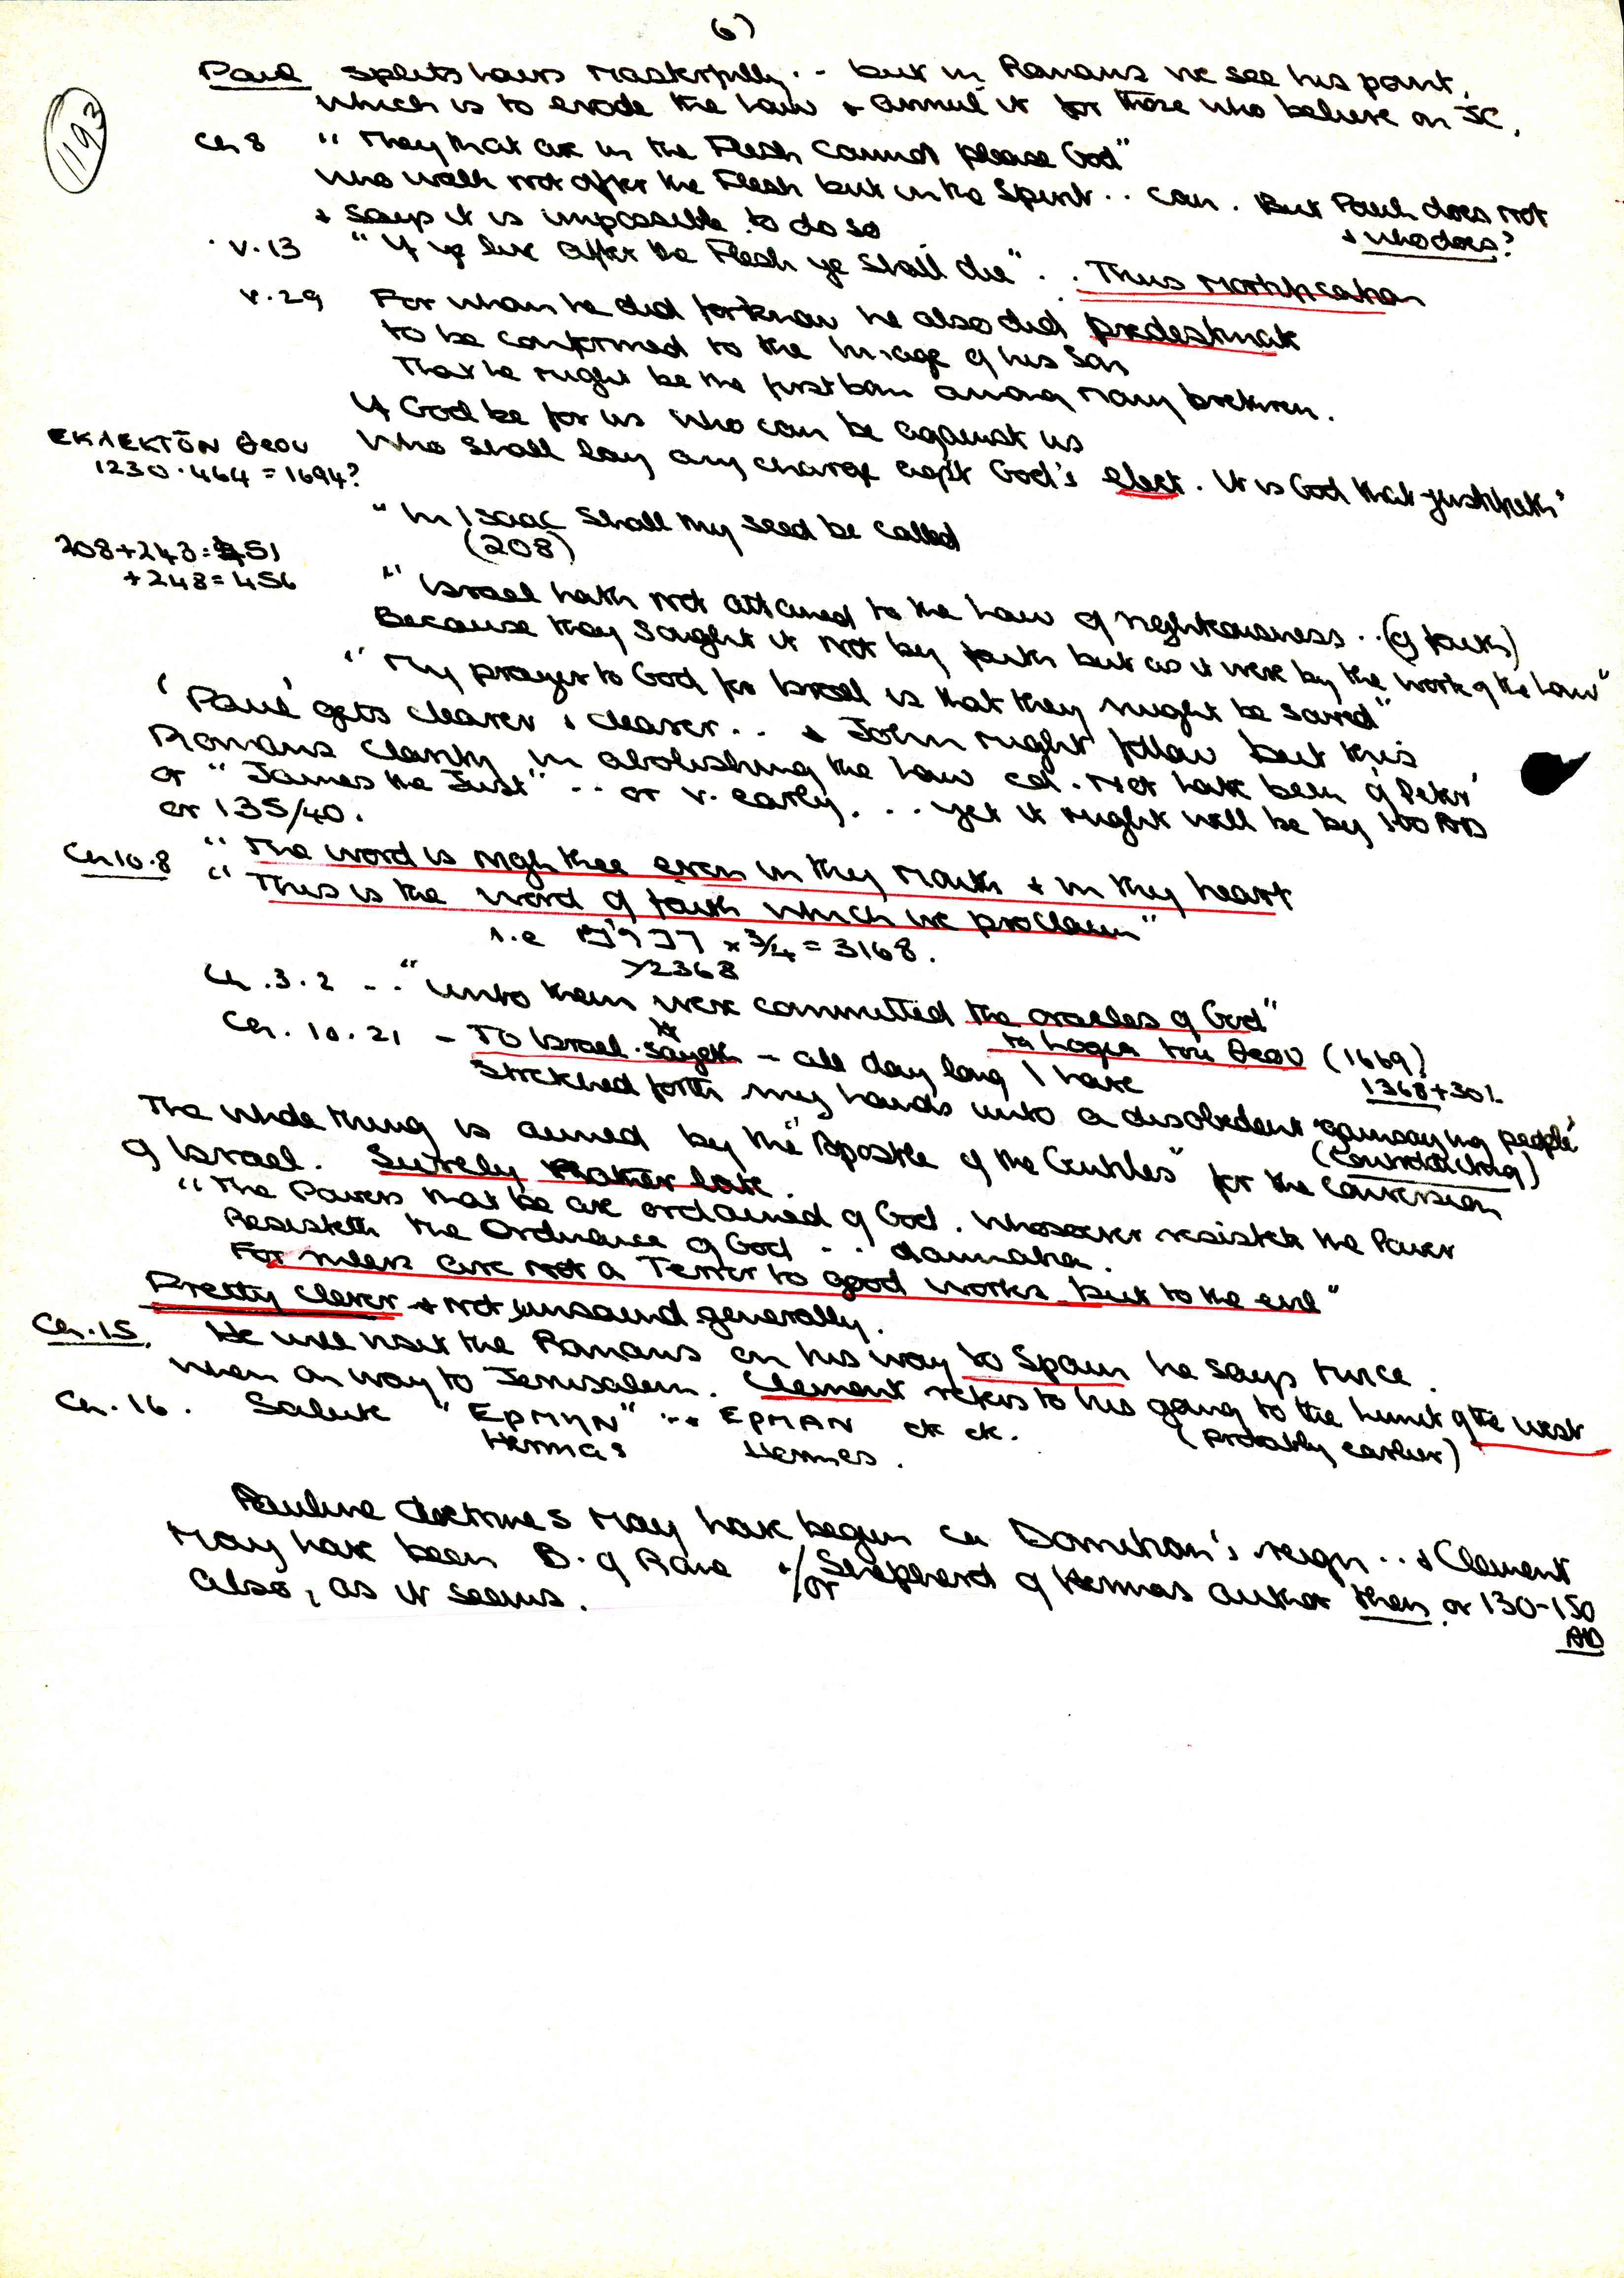 6)
1193
Paul splits hairs masterfully.. but in Romans we see his point,
which is to erode the Law + annul it for those who believe on JC.
Ch 8 "They that are in the Flesh cannot please God"
who walk not after the Flesh but in the Spirit .. can. But Paul does not
+ says it is impossible to do so + who does?
v.13 "If ye live after the Flesh ye shall die" .. Thus mortification
v.29 For whom he did foreknow he also did predestinate
to be conformed to the image of his Son
That he might be the firstborn among many brethren.
If God be for us who can be against us
ΕΚΛΕΚΤΩΝ θεου Who shall lay any charge agst God's elect. It is God that justifieth'
1230.464 = 1694?
"In Isaac shall thy seed be called
(208)
208+243=451
+248=456
"Israel hath not attained to the Law of righteousness..(of faith)
Because they sought it not by faith but as it were by the work of the Law"
"My prayer to God for Israel is that they might be saved"
'Paul' gets clearer + clearer.. + John might follow but this
Romans clarity in abolishing the Law cd. not have been of 'Peter'
or "James the Just" .. or v. early. ... yet it might well be by 100 AD
or 135/40.
Ch 10.8 "The word is nigh thee even in thy mouth + in thy heart
"This is the word of faith which we proclaim"
i.e x 3/4 = 3168.
>2368
Ch.3.2 -- "unto them were committed the oracles of God"
ta Logia tou θεου (1669)
1368+301.
Ch. 10.21 - To Israel. sayeth - all day long I have
stretched forth my hands unto a disobedient gainsaying people'
(Contradicting)
The whole thing is aimed by the "Apostle of the Gentiles" for the conversion
of Israel. Surely rather late.
"The Powers that be are ordained of God. Whosoever resisteth the Power
Resisteth the Ordinance of God .. damnation.
For rulers are not a Terror to good works but to the evil"
Pretty clever + not unsound generally.
Ch.15. He will visit the Romans on his way to Spain he says twice.
when on way to Jerusalem. Clement refers to his going to the limit of the west
(probably earlier)
Ch.16. Salute "ΕΡΜΗΝ" .. + ΕΡΜΑΝ etc etc.
Hermas Hermes.
Pauline doctrines may have begun in Domitian's reign .. + Clement
may have been B. of Rome +/or Shepherd of Hermas author then or 130-150
AD
also, as it seems.